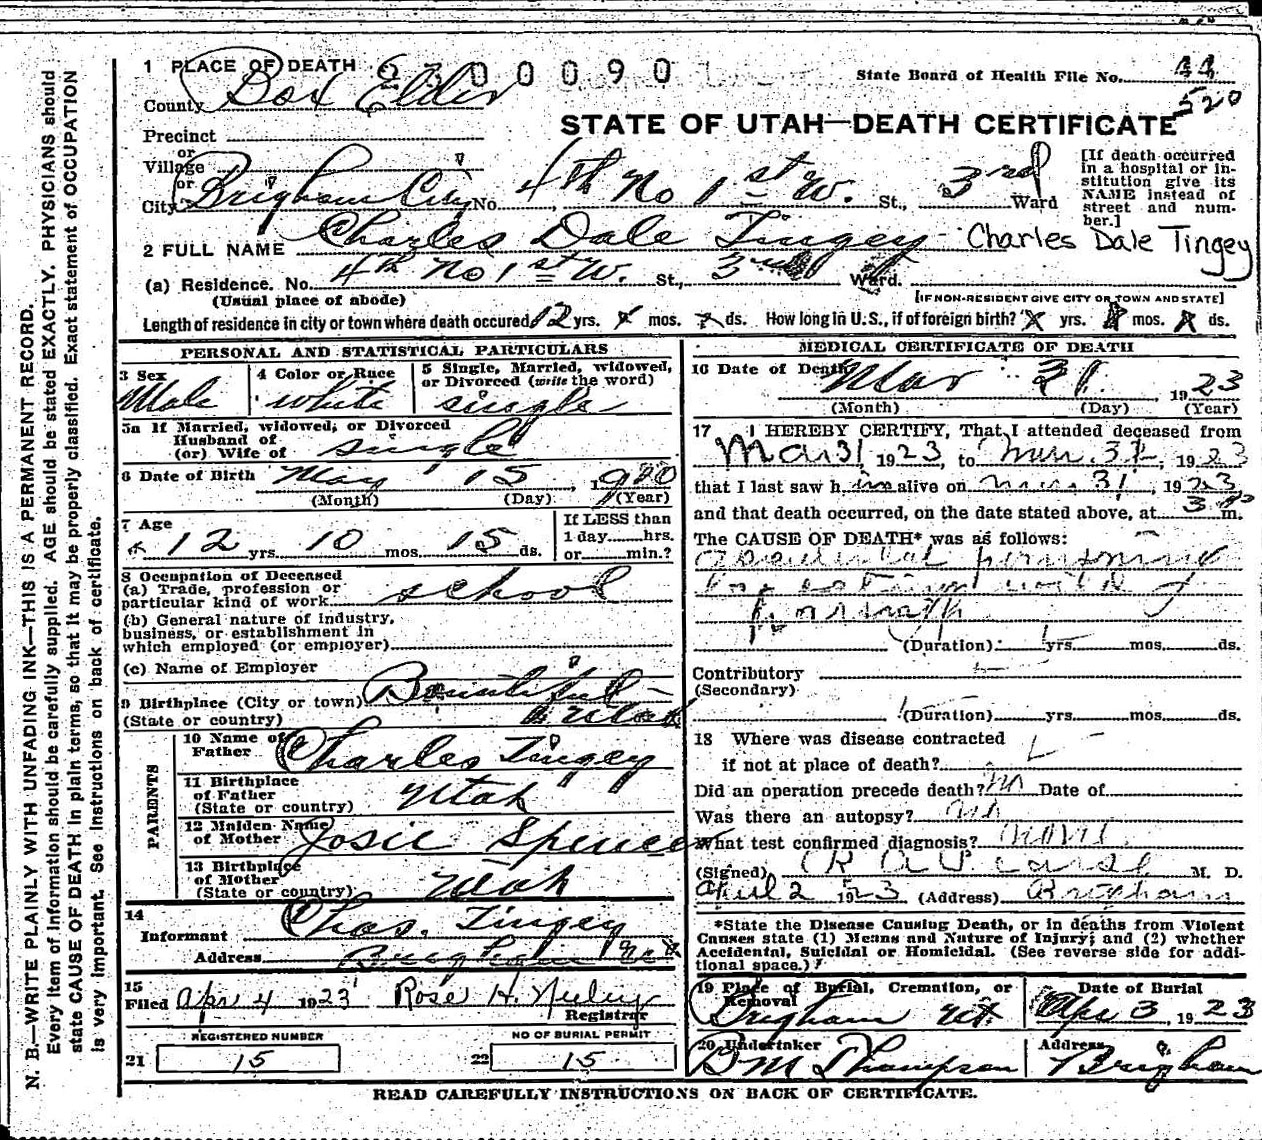 1 PLACE OF DEATH 2300090
State Board of Health File No. 44
County Box Elder
520
STATE OF UTAH—DEATH CERTIFICATE
Precinct
or
Village
or
City Brigham City No. 4th No 1st W. St., 3rd Ward
[If death occurred in a hospital or institution give its NAME instead of street and number.]
2 FULL NAME Charles Dale Tingey Charles Dale Tingey
(a) Residence. No. 4th No 1st W. St., 3rd Ward.
(Usual place of abode) [IF NON-RESIDENT GIVE CITY OR TOWN AND STATE]
Length of residence in city or town where death occured 12 yrs. x mos. x ds. How long in U.S., if of foreign birth? x yrs. x mos. x ds.
PERSONAL AND STATISTICAL PARTICULARS
3 Sex Male
4 Color or Race white
5 Single, Married, widowed, or Divorced (write the word) single
5a If Married, widowed, or Divorced
Husband of
(or) Wife of single
6 Date of Birth May 15, 1910
(Month) (Day) (Year)
7 Age 12 yrs. 10 mos. 15 ds.
If LESS than
1 day hrs.
or min.?
8 Occupation of Deceased
(a) Trade, profession or
particular kind of work school
(b) General nature of industry,
business, or establishment in
which employed (or employer)
(c) Name of Employer
9 Birthplace (City or town) Bountiful
(State or country) Utah
PARENTS
10 Name of Father Charles Tingey
11 Birthplace of Father
(State or country) Utah
12 Maiden Name of Mother Josie Spence
13 Birthplace of Mother
(State or country) Utah
14
Informant Chas. Tingey
Address Brigham Utah
15
Filed Apr 4 1923 Rose H. Neeley
Registrar
REGISTERED NUMBER NO OF BURIAL PERMIT
21 15 22 15
MEDICAL CERTIFICATE OF DEATH
16 Date of Death Mar 31. 1923
(Month) (Day) (Year)
17 I HEREBY CERTIFY, That I attended deceased from
Mar 31 1923, to Mar. 31, 1923
that I last saw him alive on Mar 31, 1923
and that death occurred, on the date stated above, at 3 m.
The CAUSE OF DEATH* was as follows:
accidental poisoning
by eating wild
parsnip
(Duration) yrs. mos. ds.
Contributory
(Secondary)
(Duration) yrs. mos. ds.
18 Where was disease contracted
if not at place of death?
Did an operation precede death? no Date of
Was there an autopsy? no
What test confirmed diagnosis? none
(Signed) R A Pearse M. D.
April 2 1923 (Address) Brigham
*State the Disease Causing Death, or in deaths from Violent
Causes state (1) Means and Nature of Injury; and (2) whether
Accidental, Suicidal or Homicidal. (See reverse side for addi-
tional space.)
19 Place of Burial, Cremation, or Removal Brigham Ut.
Date of Burial Apr 3, 1923
20 Undertaker D M Thompson
Address Brigham
READ CAREFULLY INSTRUCTIONS ON BACK OF CERTIFICATE.
N. B.—WRITE PLAINLY WITH UNFADING INK—THIS IS A PERMANENT RECORD.
Every item of information should be carefully supplied. AGE should be stated EXACTLY. PHYSICIANS should
state CAUSE OF DEATH in plain terms, so that it may be properly classified. Exact statement of OCCUPATION
is very important. See instructions on back of certificate.